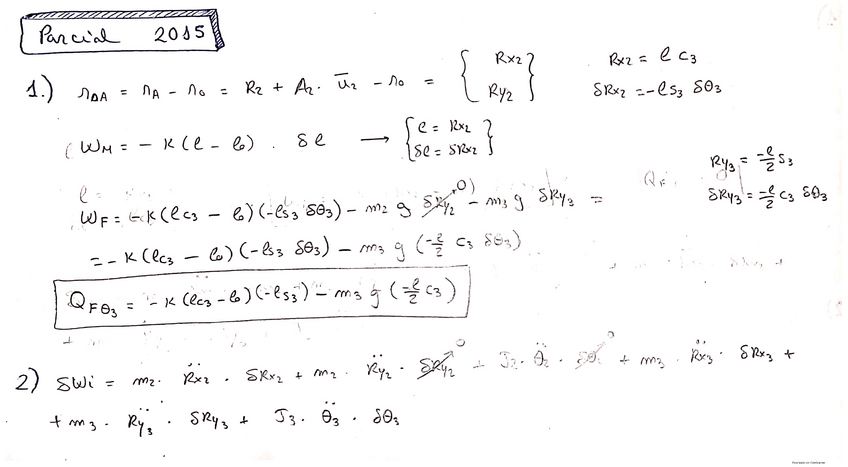 Parcial 2015
1.) r₀A = rA - r₀ = R₂ + A₂ · ū₂ - r₀ = { Rx2 Ry2 }
Rx2 = ℓ c₃
δRx2 = -ℓs₃ δθ₃
WM = - K(ℓ - ℓ₀) · δℓ → { ℓ = Rx2 δℓ = δRx2 }
Ry3 = -ℓ/2 s₃
δRy3 = -ℓ/2 c₃ δθ₃
ℓ =
WF = -K(ℓc₃ - ℓ₀)(-ℓs₃ δθ₃) - m₂ g δRy2 (→0) - m₃ g δRy3 =
= - K(ℓc₃ - ℓ₀)(-ℓs₃ δθ₃) - m₃ g (-ℓ/2 c₃ δθ₃)
QFθ₃ = - K(ℓc₃ - ℓ₀)(-ℓs₃) - m₃ g (-ℓ/2 c₃)
2) δWi = m₂ · R̈x2 · δRx2 + m₂ · R̈y2 · δRy2 (→0) + J₂ · θ̈₂ · δθ₂ (→0) + m₃ · R̈x3 · δRx3 +
+ m₃ · R̈y3 · δRy3 + J₃ · θ̈₃ · δθ₃